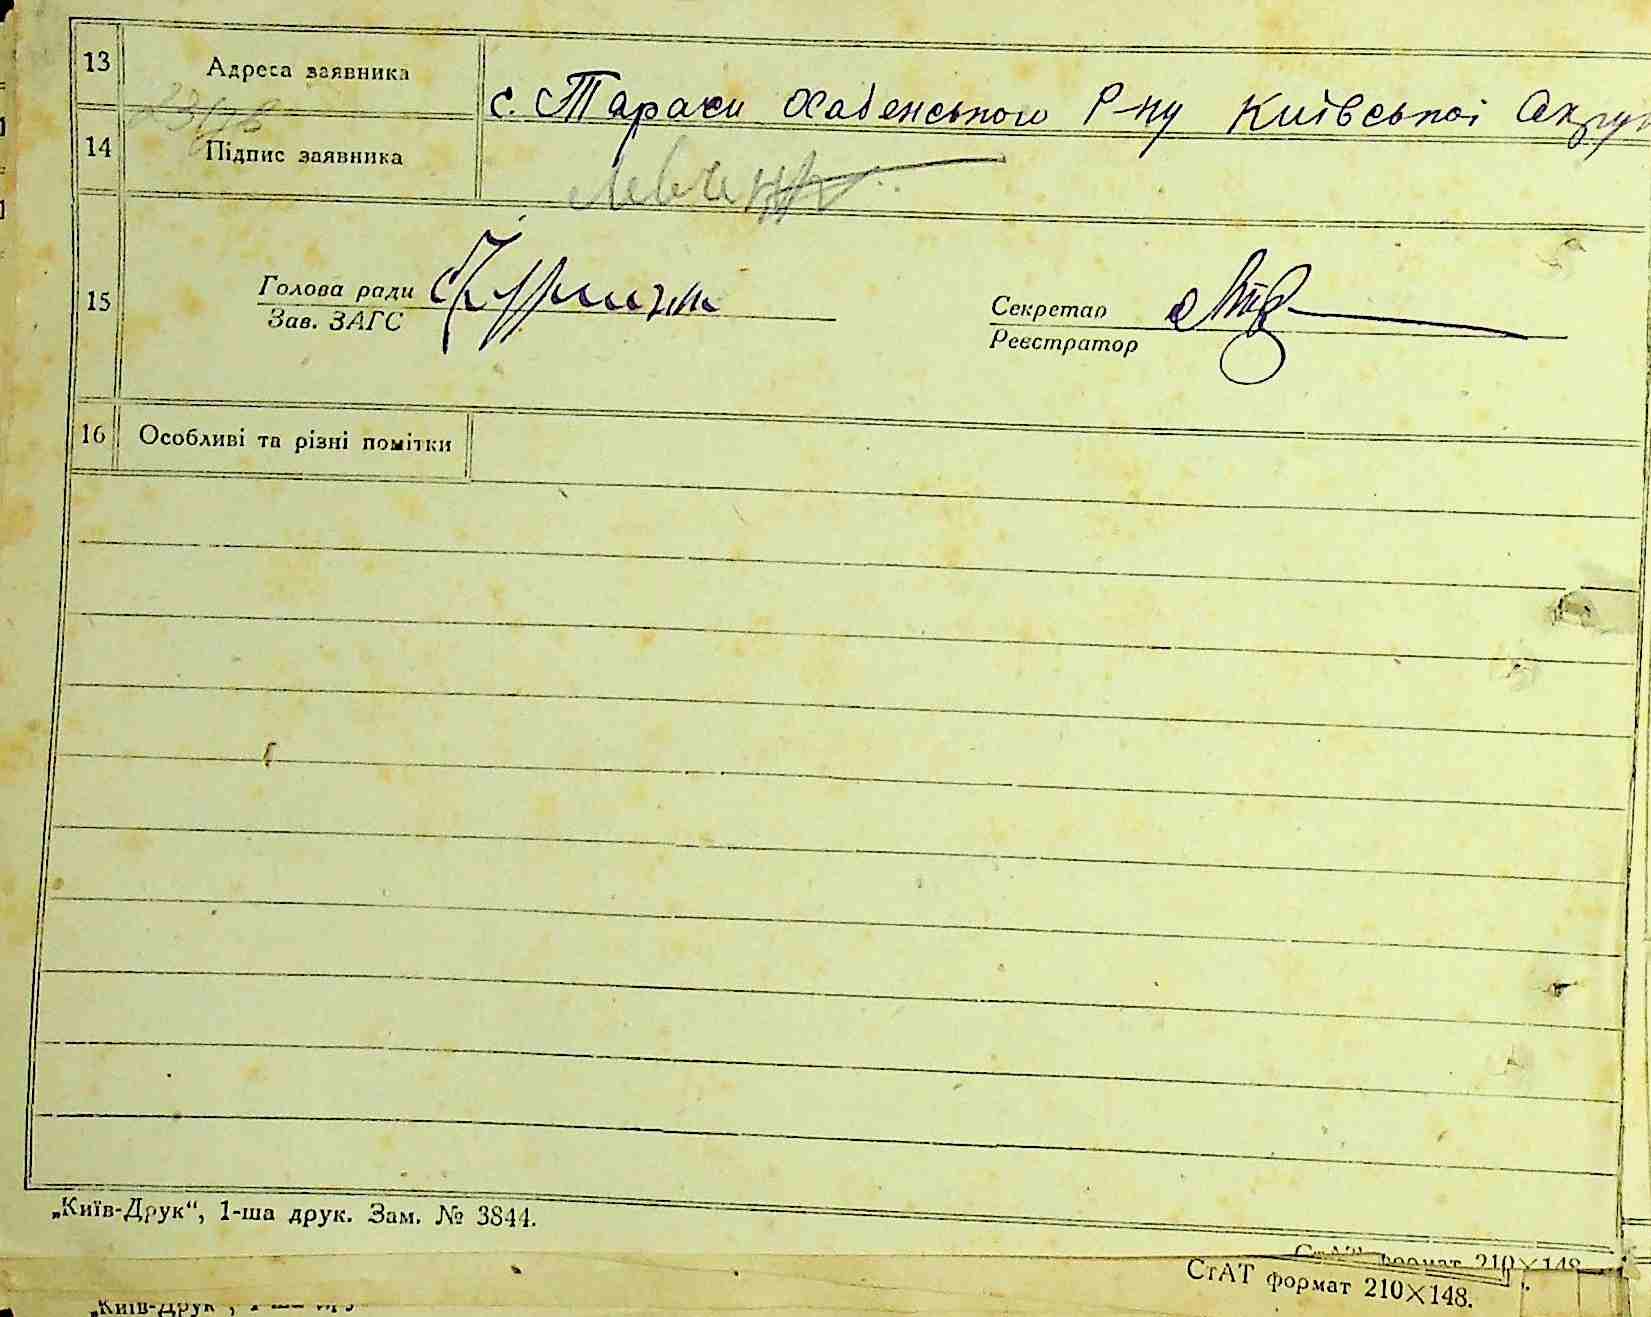 13 Адреса заявника с. Тараси Хабенського Р-ну Київської Округ
14 Підпис заявника
15 Голова ради Секретар
Зав. ЗАГС Реєстратор
16 Особливі та різні помітки
„Київ-Друк“, 1-ша друк. Зам. № 3844.
формат 210×148
СтАТ формат 210×148.
„Київ-Друк“,